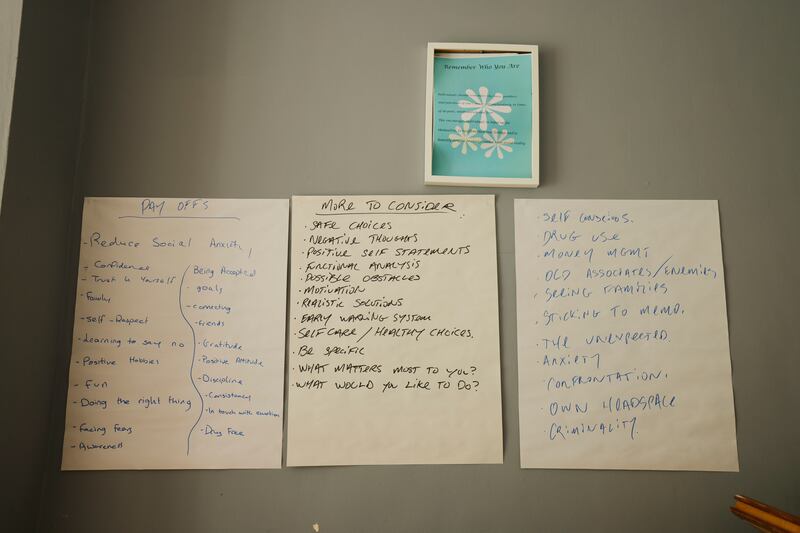 Remember Who You Are
PAY OFFS
- Reduce Social Anxiety
- Confidence
- Trust in Yourself
- Family
- Self-Respect
- Learning to say no
- Positive Hobbies
- Fun
- Doing the right thing
- Facing fears
- Awareness
Being Accepted
- goals
- connecting
- friends
- Gratitude
- Positive Attitude
- Discipline
- Consistancy
- In touch with emotions
- Drug Free
MORE TO CONSIDER
· SAFE CHOICES
· NEGATIVE THOUGHTS
· POSITIVE SELF STATEMENTS
· FUNCTIONAL ANALYSIS
· POSSIBLE OBSTACLES
· MOTIVATION
· REALISTIC SOLUTIONS
· EARLY WARNING SYSTEM
· SELF CARE / HEALTHY CHOICES.
· BE SPECIFIC
· WHAT MATTERS MOST TO YOU?
· WHAT WOULD YOU LIKE TO DO?
· SELF CONSCIOUS.
· DRUG USE
· MONEY MGMT
· OLD ASSOCIATES/ENEMIES
· SEEING FAMILIES
· STICKING TO MEMO.
· THE UNEXPECTED.
· ANXIETY
· CONFRONTATION.
· OWN HEADSPACE
· CRIMINALITY.